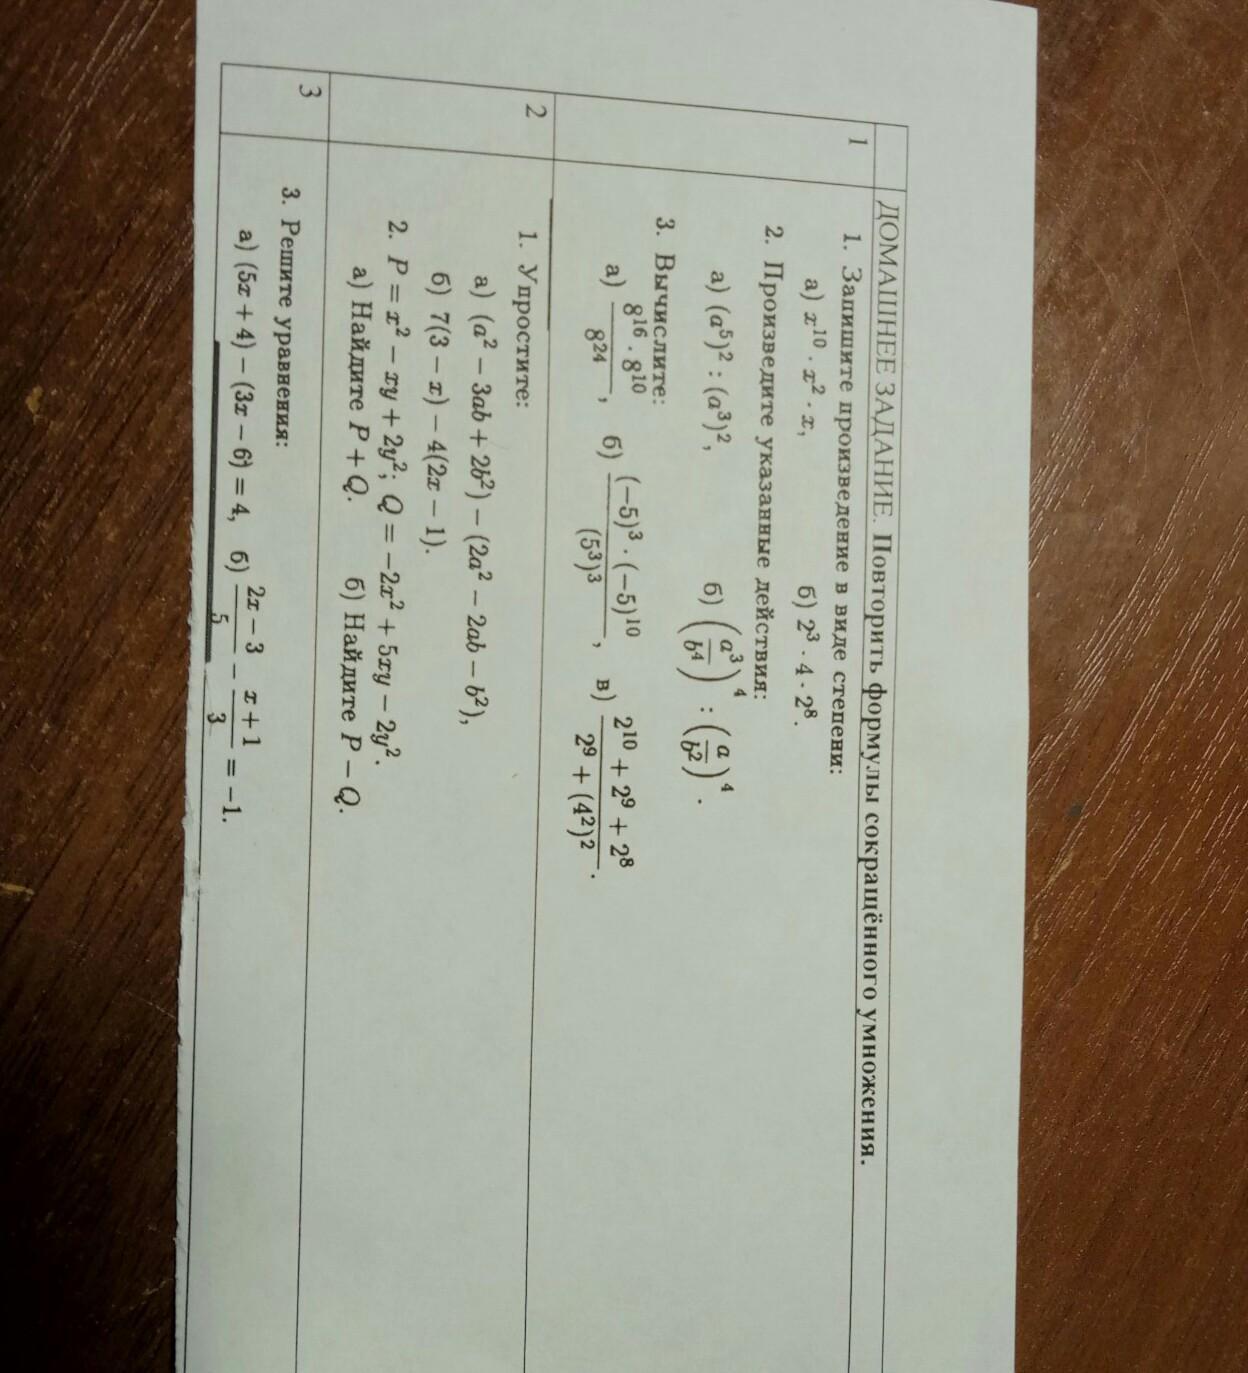 ДОМАШНЕЕ ЗАДАНИЕ. Повторить формулы сокращённого умножения.
1
1. Запишите произведение в виде степени:
а) x¹⁰ · x² · x, б) 2³ · 4 · 2⁸.
2. Произведите указанные действия:
а) (a⁵)² : (a³)², б) (a³/b⁴)⁴ : (a/b²)⁴.
3. Вычислите:
а) 8¹⁶ · 8¹⁰ / 8²⁴, б) (−5)³ · (−5)¹⁰ / (5³)³, в) 2¹⁰ + 2⁹ + 2⁸ / 2⁹ + (4²)².
2
1. Упростите:
а) (a² − 3ab + 2b²) − (2a² − 2ab − b²),
б) 7(3 − x) − 4(2x − 1).
2. P = x² − xy + 2y²; Q = −2x² + 5xy − 2y².
а) Найдите P + Q. б) Найдите P − Q.
3
3. Решите уравнения:
а) (5x + 4) − (3x − 6) = 4, б) 2x − 3 / 5 − x + 1 / 3 = −1.